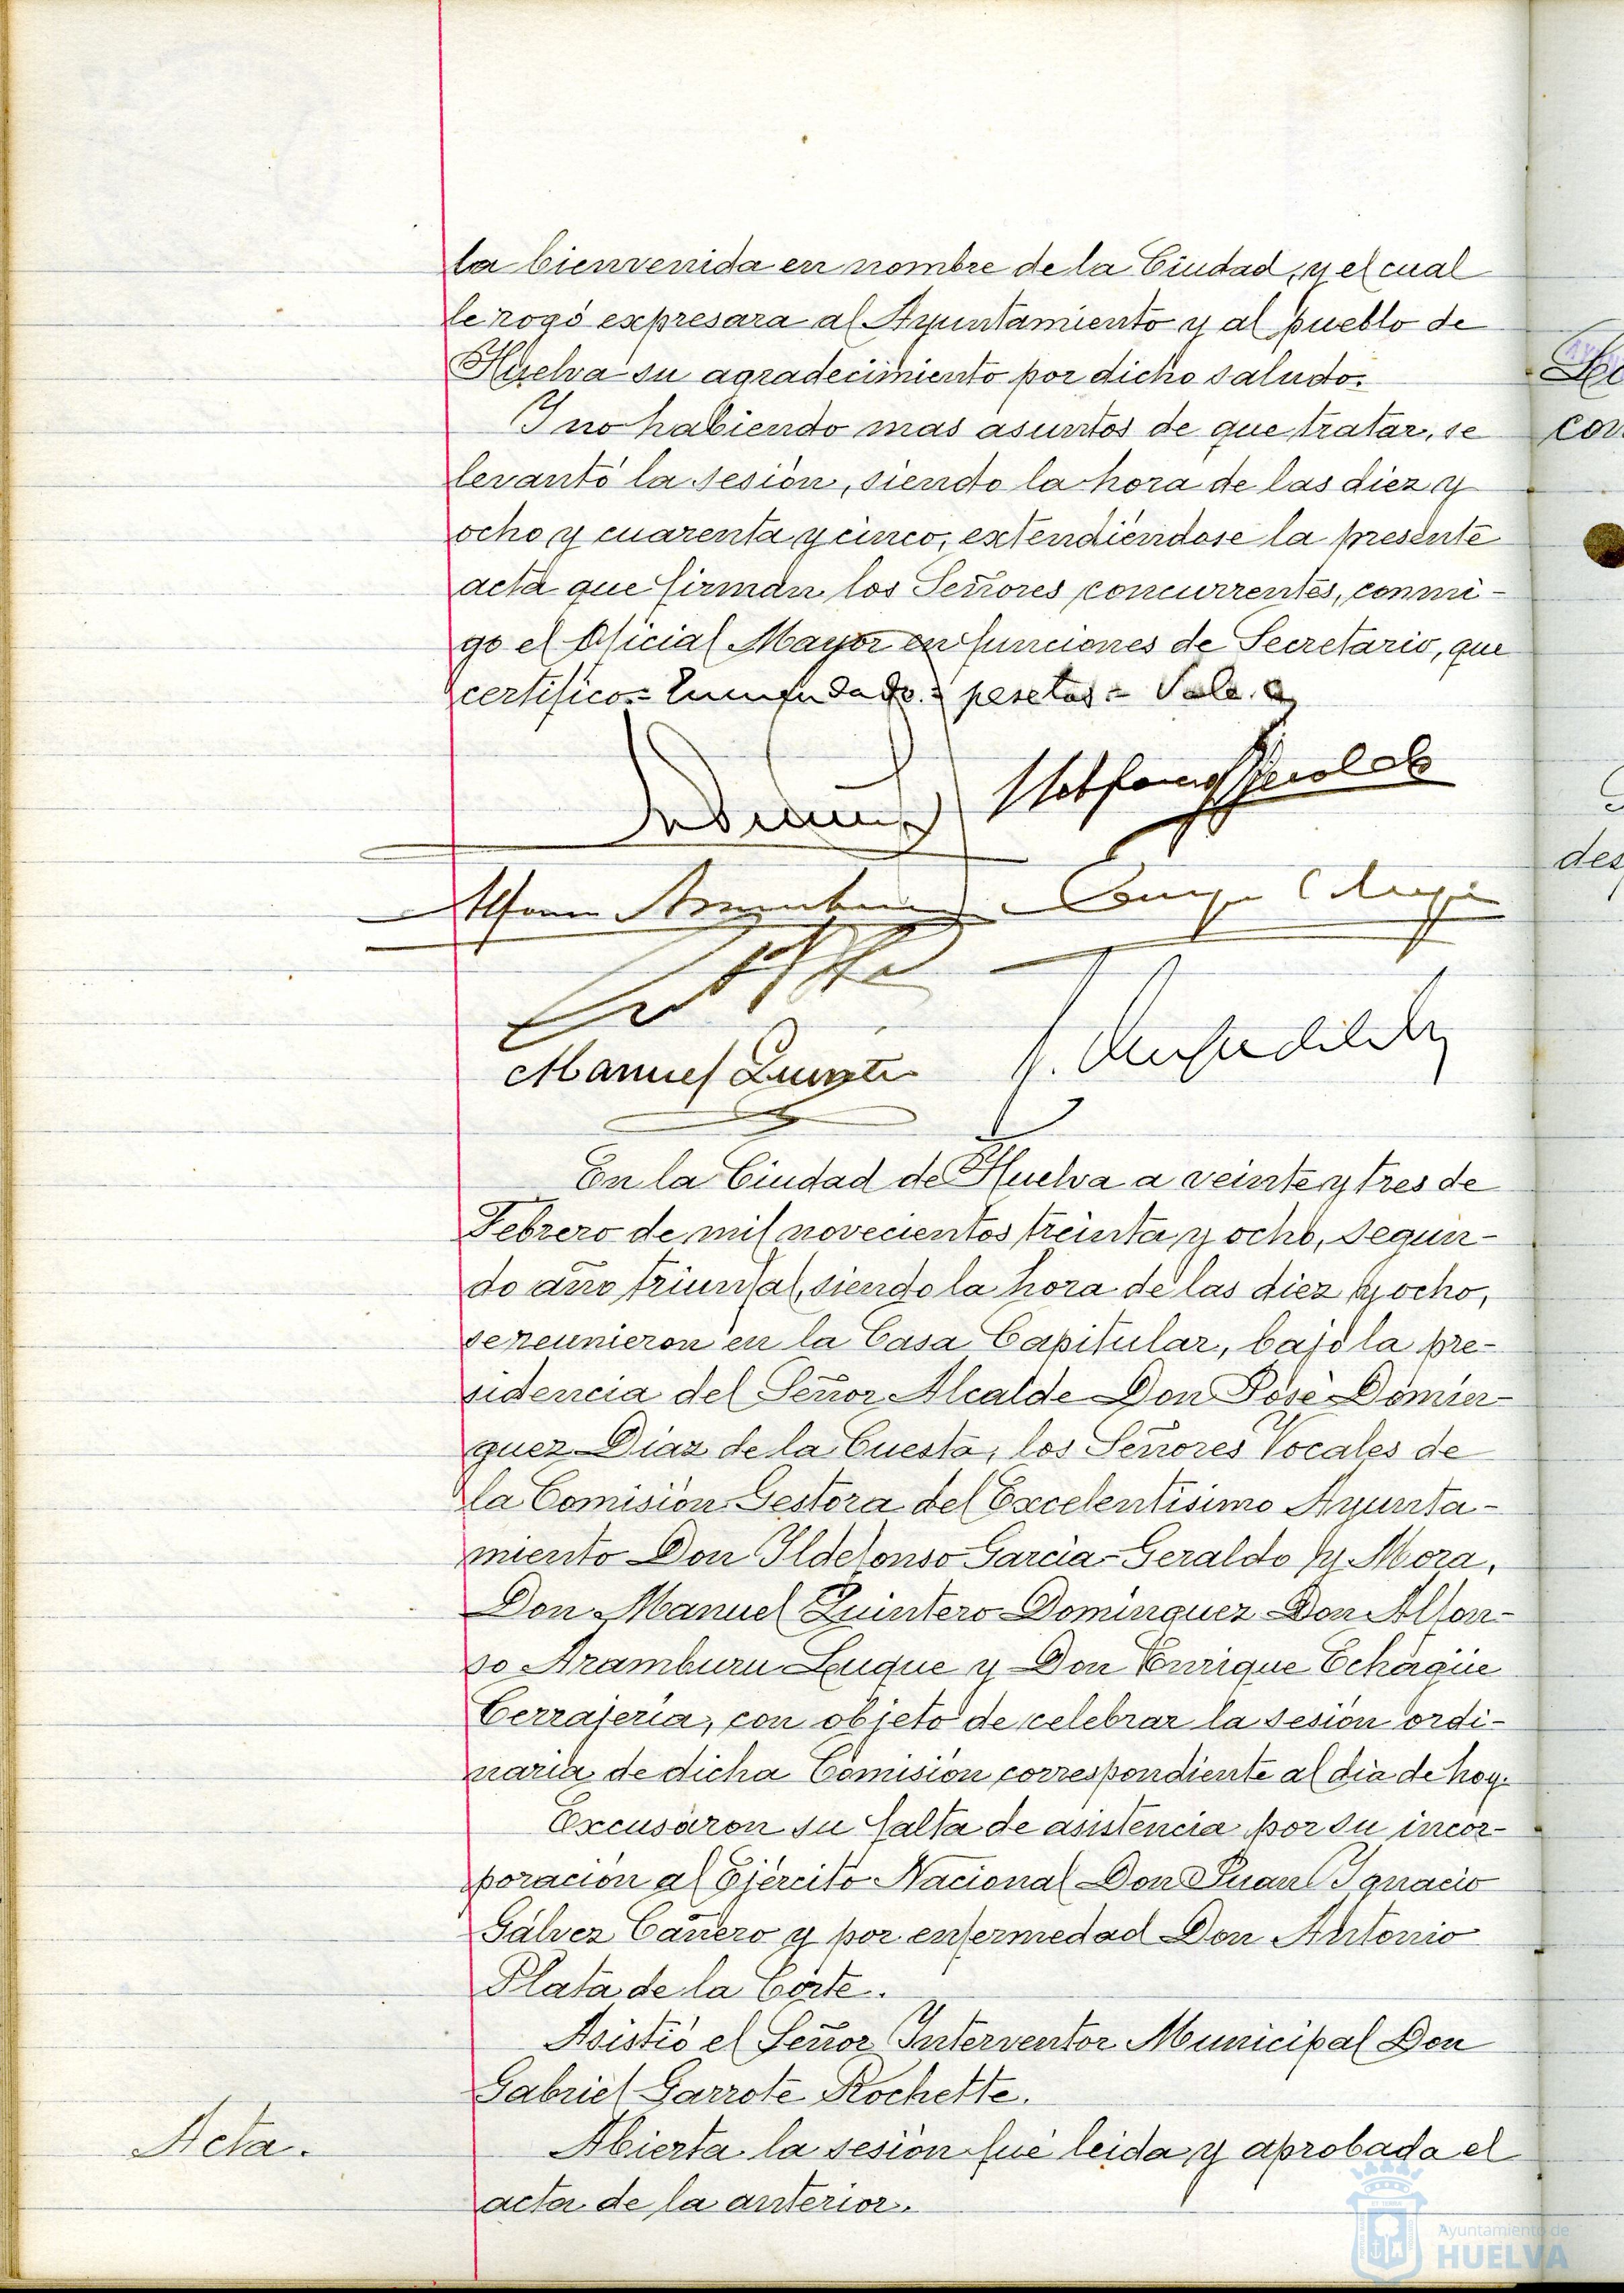 la bienvenida en nombre de la Ciudad, y el cual
le rogó expresara al Ayuntamiento y al pueblo de
Huelva su agradecimiento por dicho saludo.
Y no habiendo mas asuntos de que tratar, se
levantó la sesión, siendo la hora de las diez y
ocho y cuarenta y cinco, extendiéndose la presente
acta que firman los Señores concurrentes, conmi-
go el Oficial Mayor en funciones de Secretario, que
certifico= Enmendado.= pesetas= Vale.
Manuel Quintero
En la Ciudad de Huelva a veinte y tres de
Febrero de mil novecientos treinta y ocho, Segun-
do año triunfal, siendo la hora de las diez y ocho,
se reunieron en la Casa Capitular, bajo la pre-
sidencia del Señor Alcalde Don José Domín-
guez Diaz de la Cuesta, los Señores Vocales de
la Comisión Gestora del Excelentísimo Ayunta-
miento Don Ildefonso García-Geraldo y Mora,
Don Manuel Quintero Dominguez Don Alfon-
so Aramburu Luque y Don Enrique Echágüe
Cerrajería, con objeto de celebrar la sesión ordi-
naria de dicha Comisión correspondiente al día de hoy.
Excusáron su falta de asistencia por su incor-
poración al Ejército Nacional Don Juan Ignacio
Gálvez Cañero y por enfermedad Don Antonio
Plata de la Córte.
Asistió el Señor Interventor Municipal Don
Gabriel Garrote Rochette.
Acta.
Abierta la sesión fué leida y aprobada el
acta de la anterior.
Ayuntamiento de
HUELVA